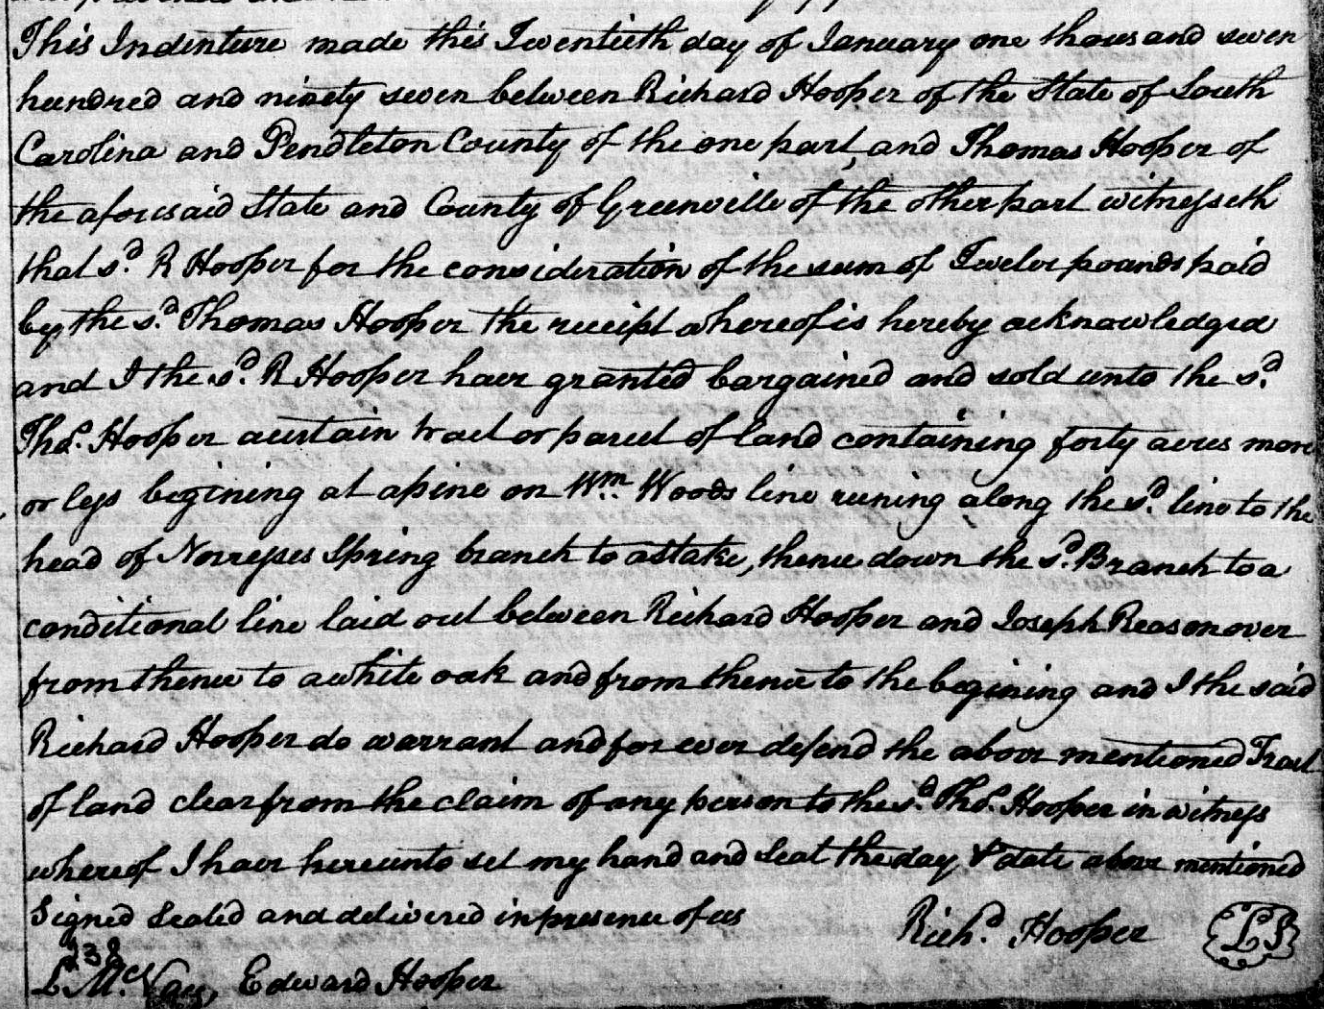 This Indenture made this Twentieth day of January one thousand seven
hundred and ninety seven between Richard Hooper of the State of South
Carolina and Pendleton County of the one part, and Thomas Hooper of
the aforesaid State and County of Greenville of the other part witnesseth
that sd. R Hooper for the consideration of the sum of Twelve pounds paid
by the sd. Thomas Hooper the receipt whereof is hereby acknowledged
and I the sd. R Hooper have granted bargained and sold unto the sd.
Thos. Hooper a certain tract or parcel of land containing forty acres more
or less begining at a pine on Wm. Woods line runing along the sd. line to the
head of Norresses Spring branch to a stake, thence down the sd. Branch to a
conditional line laid out between Richard Hooper and Joseph Reasonover
from thence to a white oak and from thence to the begining and I the said
Richard Hooper do warrant and for ever defend the above mentioned Tract
of land clear from the claim of any person to the sd. Thos. Hooper in witness
whereof I have hereunto set my hand and Seal the day & date above mentioned
Signed Sealed and delivered in presence of us
Richd. Hooper LS
238
L McVay, Edward Hooper